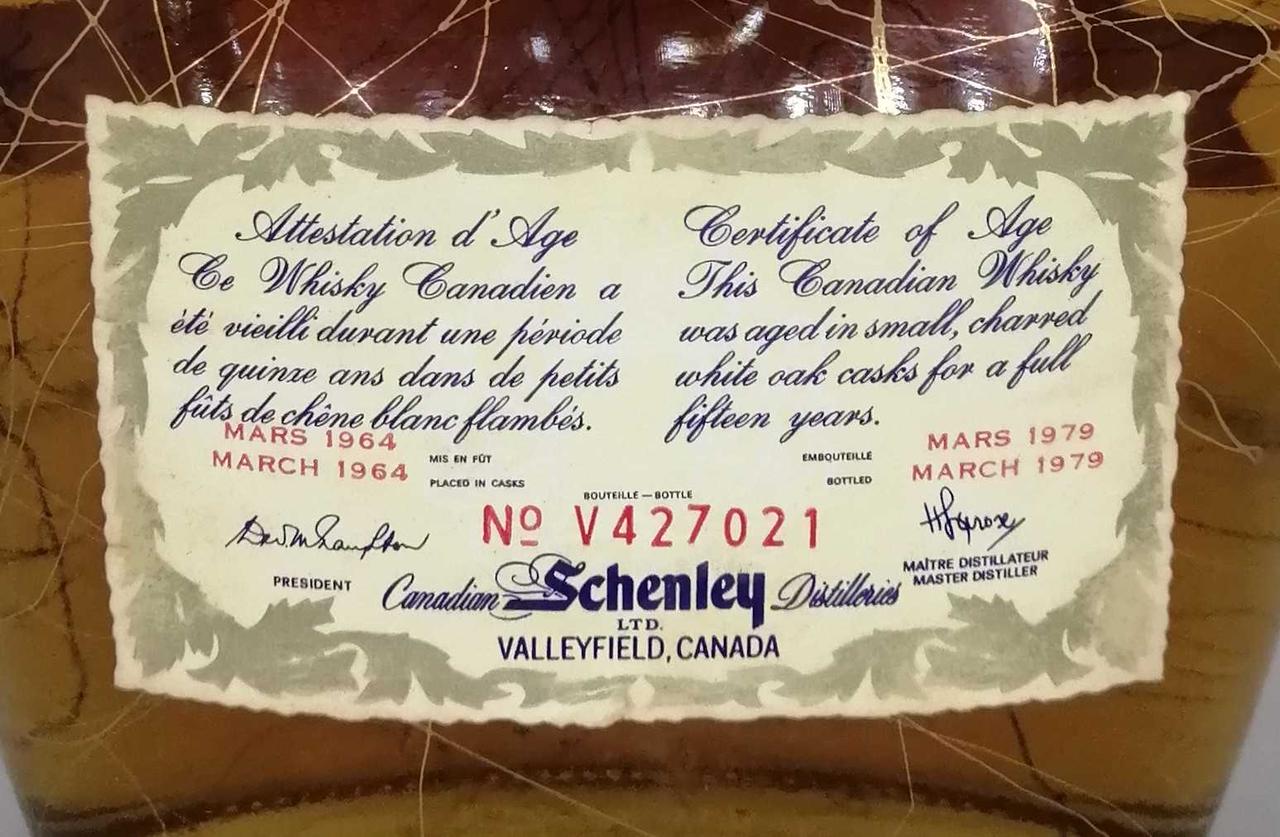 Attestation d'Age
Ce Whisky Canadien a
été vieilli durant une période
de quinze ans dans de petits
fûts de chêne blanc flambés.
Certificate of Age
This Canadian Whisky
was aged in small, charred
white oak casks for a full
fifteen years.
MARS 1964
MARCH 1964
MIS EN FÛT
PLACED IN CASKS
EMBOUTEILLÉ
BOTTLED
MARS 1979
MARCH 1979
BOUTEILLE — BOTTLE
Nº V427021
PRESIDENT
MAÎTRE DISTILLATEUR
MASTER DISTILLER
Canadian Schenley Distilleries
LTD.
VALLEYFIELD, CANADA